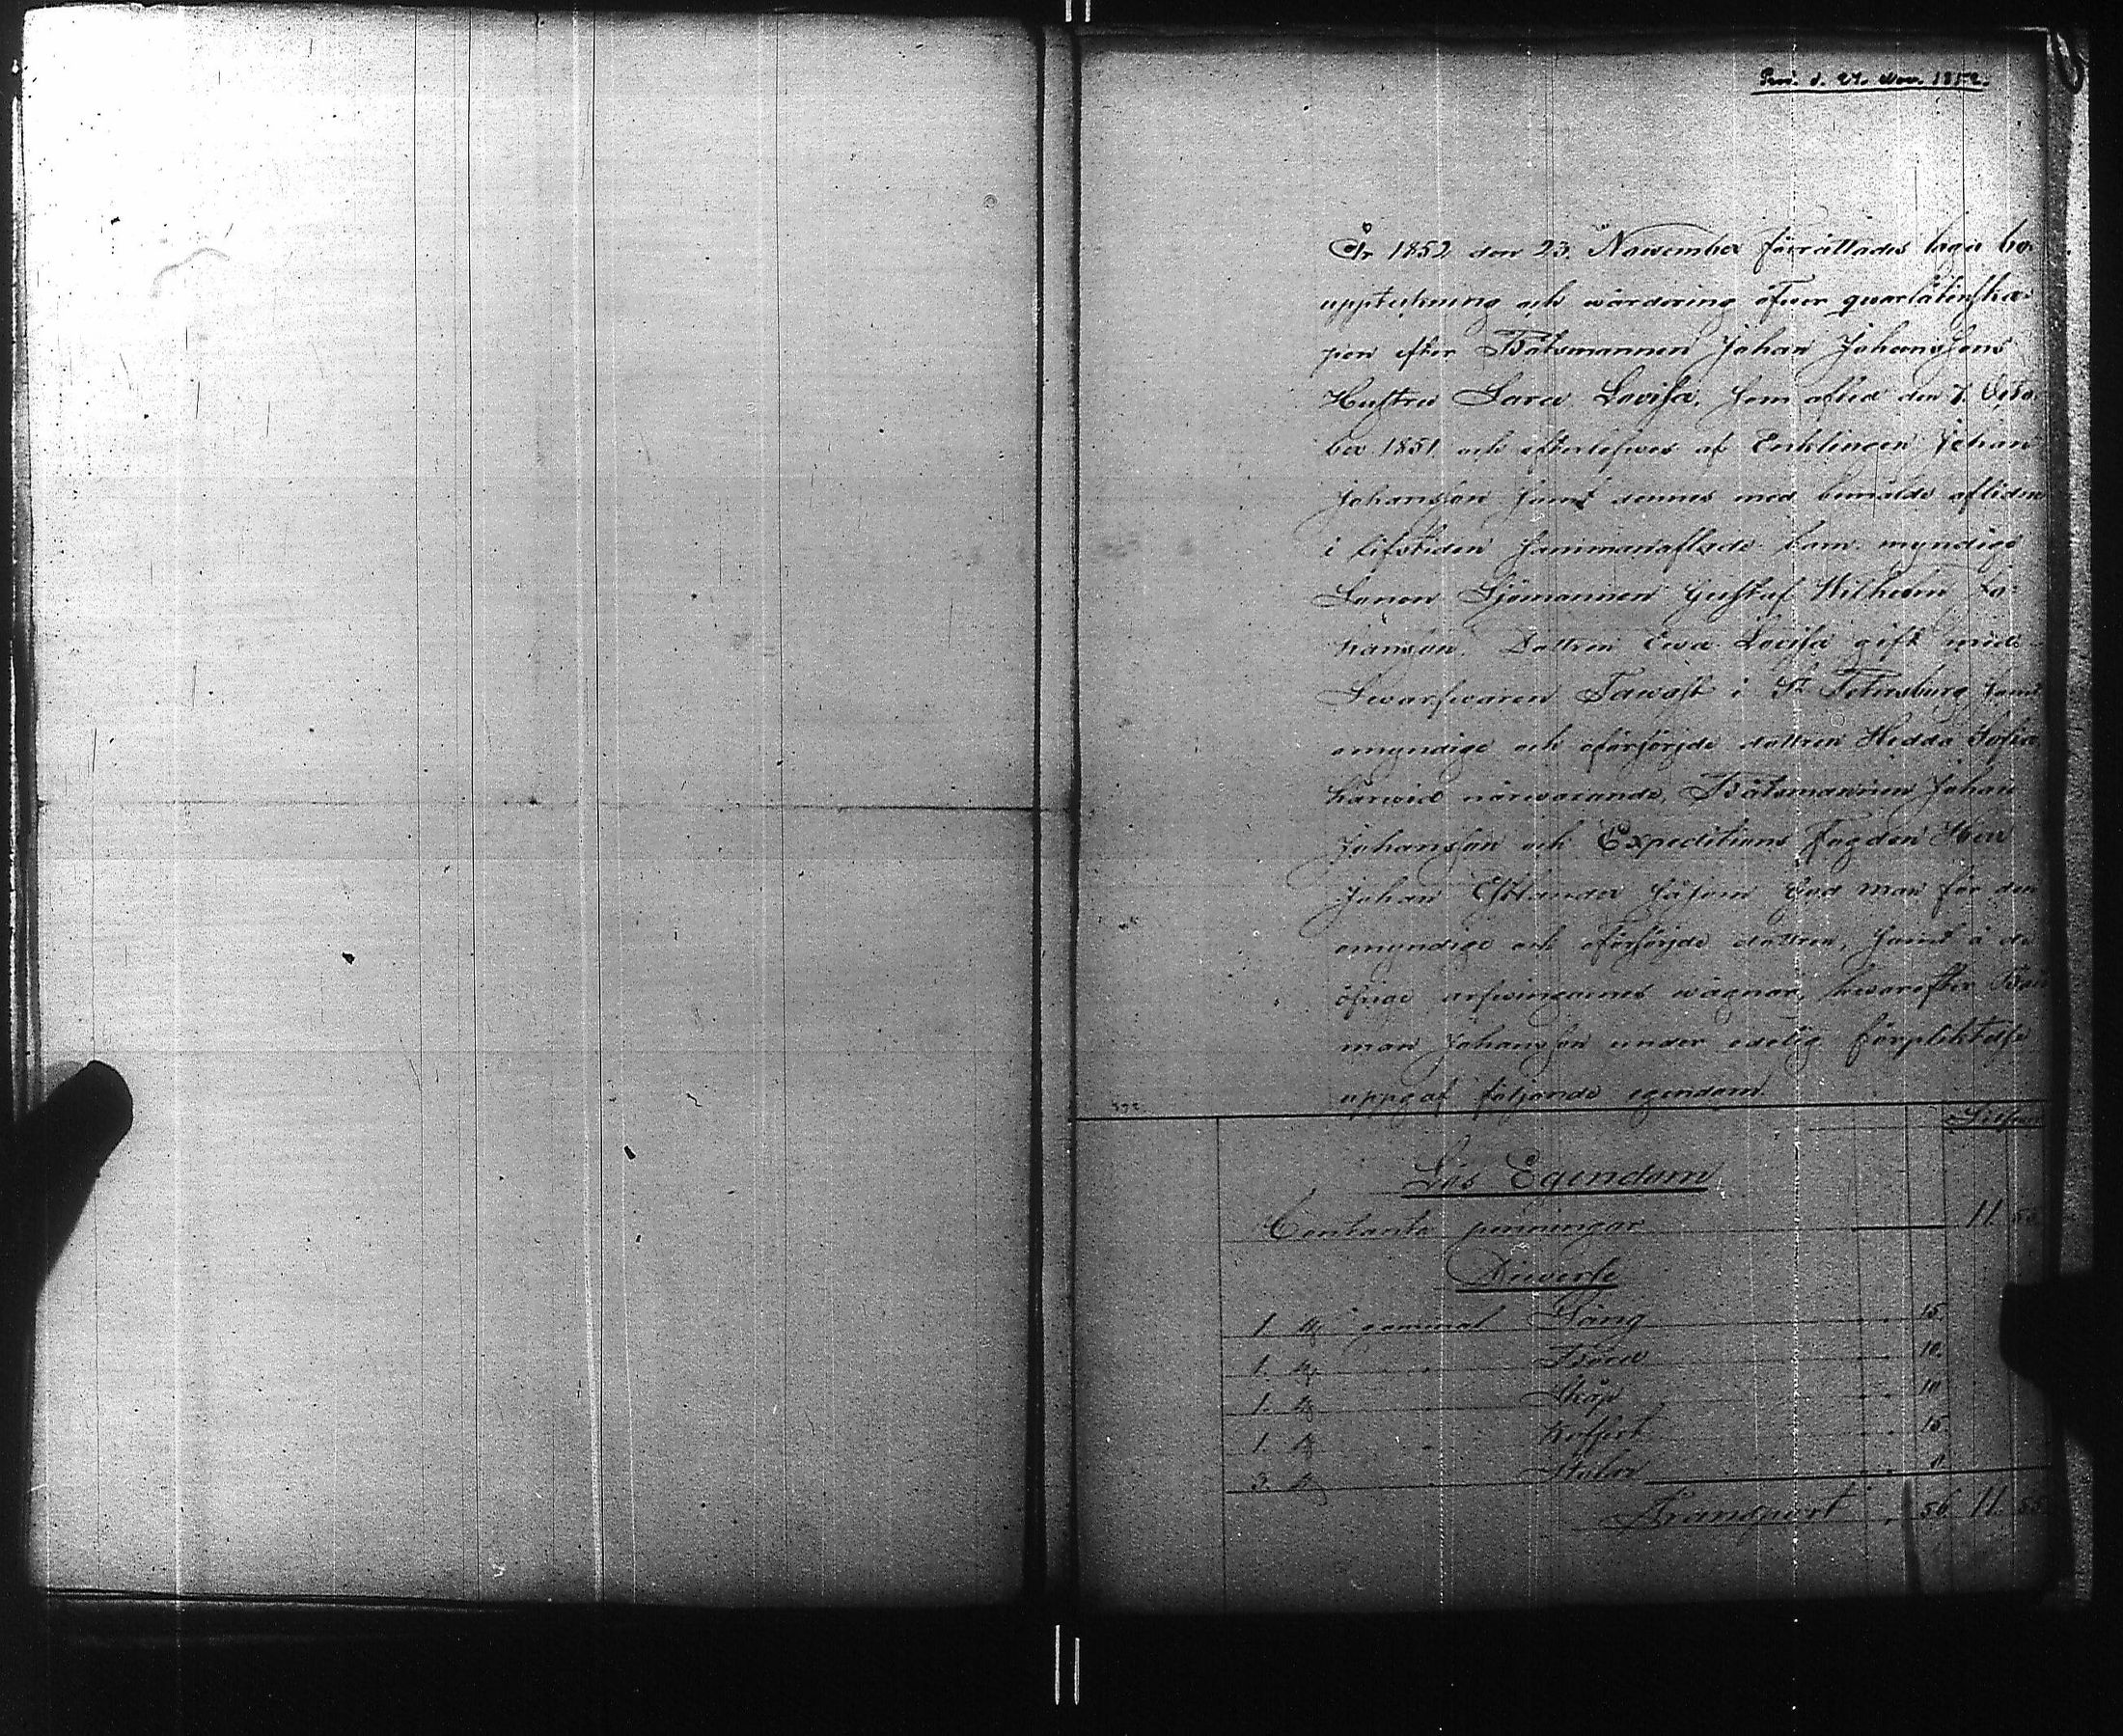 d. 27. Nov. 1852.
År 1852 den 23. November förrättades laga bo-
uppteckning och wärdering öfwer qwarlåtenska-
pen efter Båtsmannen Johan Johanssons
Hustru Sara Lovisa, som afled den 7. Octo-
ber 1851 och efterlefwes af Enklingen Johan
Johansson samt dennes med bemälde aflidne
i lifstiden sammanaflade barn myndige
Sonen Sjömannen Gustaf Wilhelm Jo-
hansson, Dottren Ewa Lovisa gift med
Swarfwaren Tawast i St Petersburg samt
omyndige och oförsörjde dottren Hedda Sofia
härwid närwarande, Båtsmannen Johan
Johansson och Expeditions Fogden Herr
Johan Estlander såsom God man för den
omyndige och oförsörjde dottren, samt å de
öfrige arfwingarnes wägnar, hwarefter Båts
man Johansson under edelig förpliktelse
uppgaf följande egendom.
Silfwer
Lös Egendom
Contante penningar 11.
Diwerse
1. st gammal Säng 15.
1. st " Bord 10.
1. st Skåp 10
1. st " Koffert 15.
3. st " Stolar
Transport 56. 11.